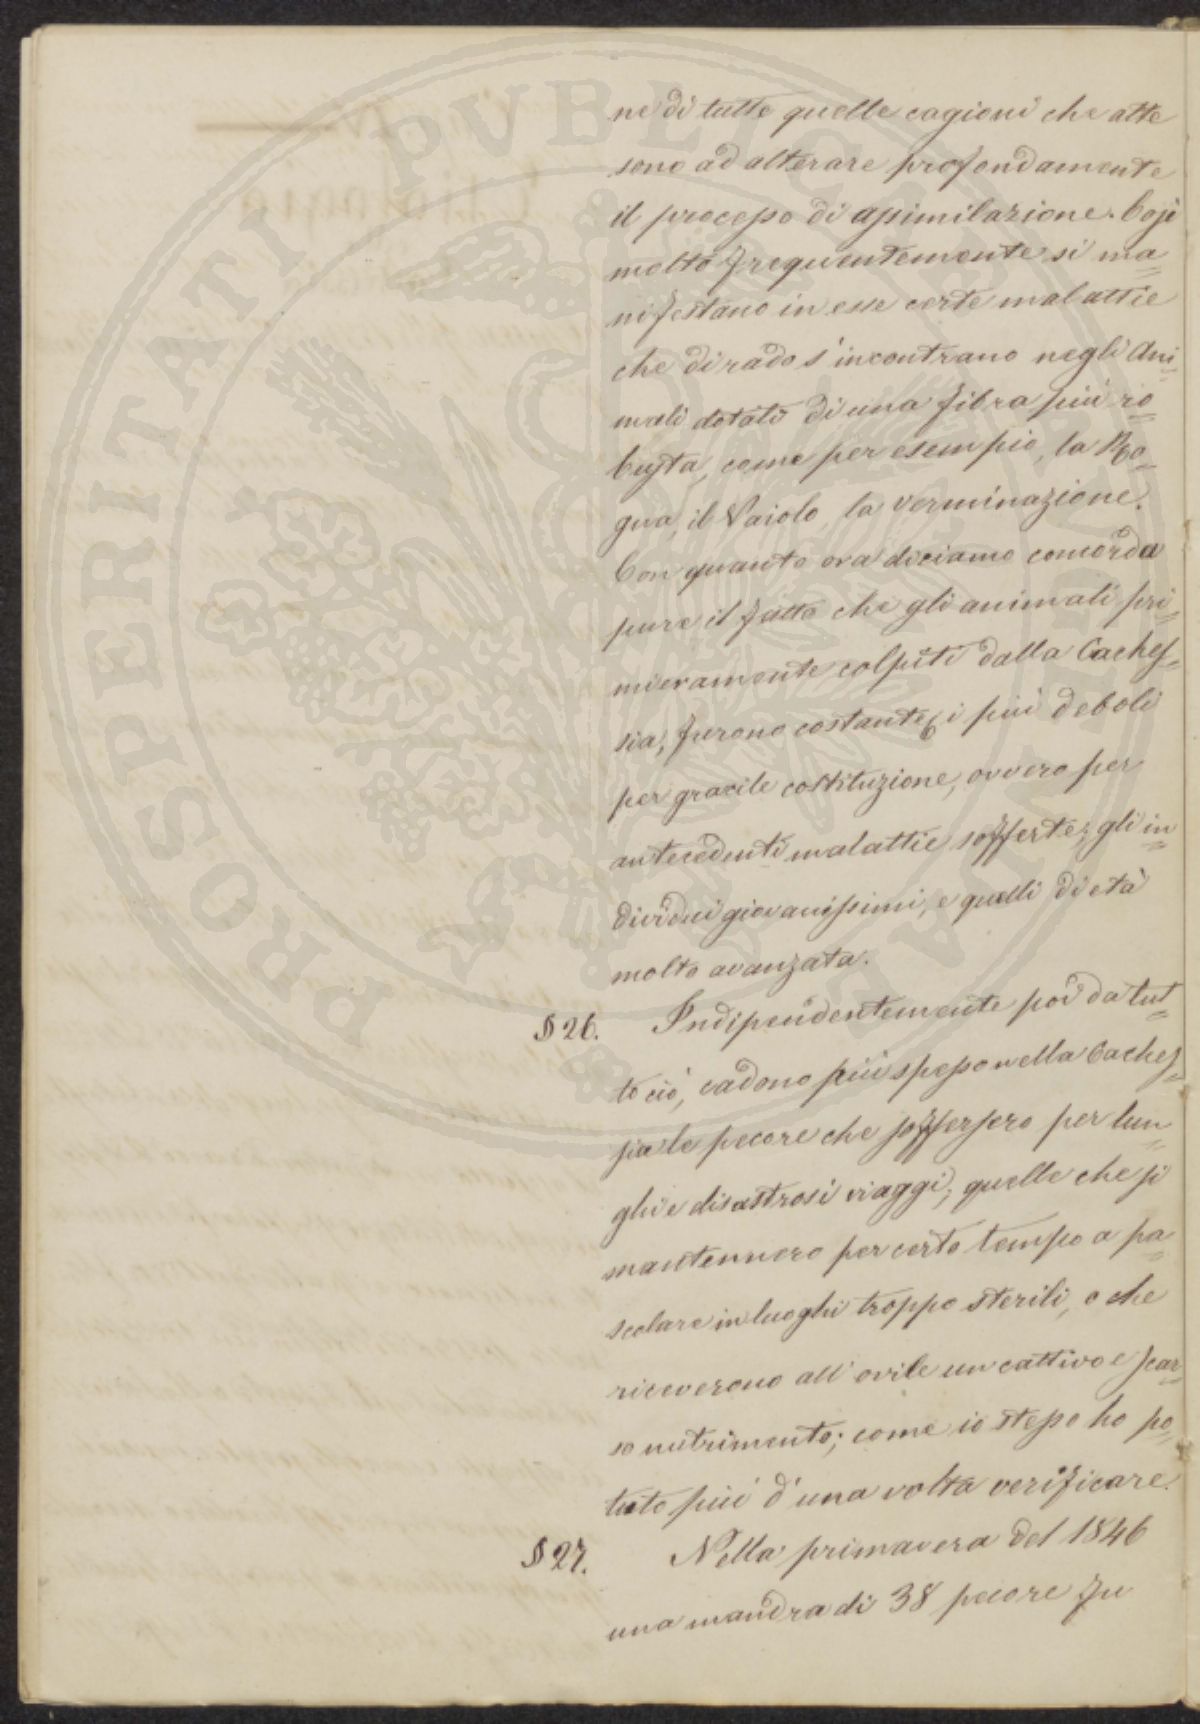 ne di tutte quelle cagioni che atte
sono ad alterare profondamente
il processo di assimilazione. Così
molto frequentemente si ma=
nifestano in esse certe malattie
che di rado s'incontrano negli Ani=
mali dotati di una fibra più ro=
busta, come per esempio, la Ro=
gna, il Vaiolo, la verminazione.
Con quanto ora diciamo concorda
pure il fatto che gli animali pri=
mieramente colpiti dalla Caches=
sia, furono costante i più deboli
per gracile costituzione, ovvero per
antecedenti malattie sofferte; gli in=
dividui giovanissimi, e quelli di età
molto avanzata.
§ 26. Indipendentemente poi da tut=
to ciò, cadono più spesso nella Caches=
sia le pecore che soffersero per lun=
ghi e disastrosi viaggi; quelle che si
mantennero per certo tempo a pa=
scolare in luoghi troppo sterili, o che
riceverono all'ovile un cattivo e scar=
so nutrimento; come io stesso ho po=
tuto più d'una volta verificare.
§ 27. Nella primavera del 1846
una mandra di 38 pecore fu
PROSPERITATI PVBLICAE AVGENDAE